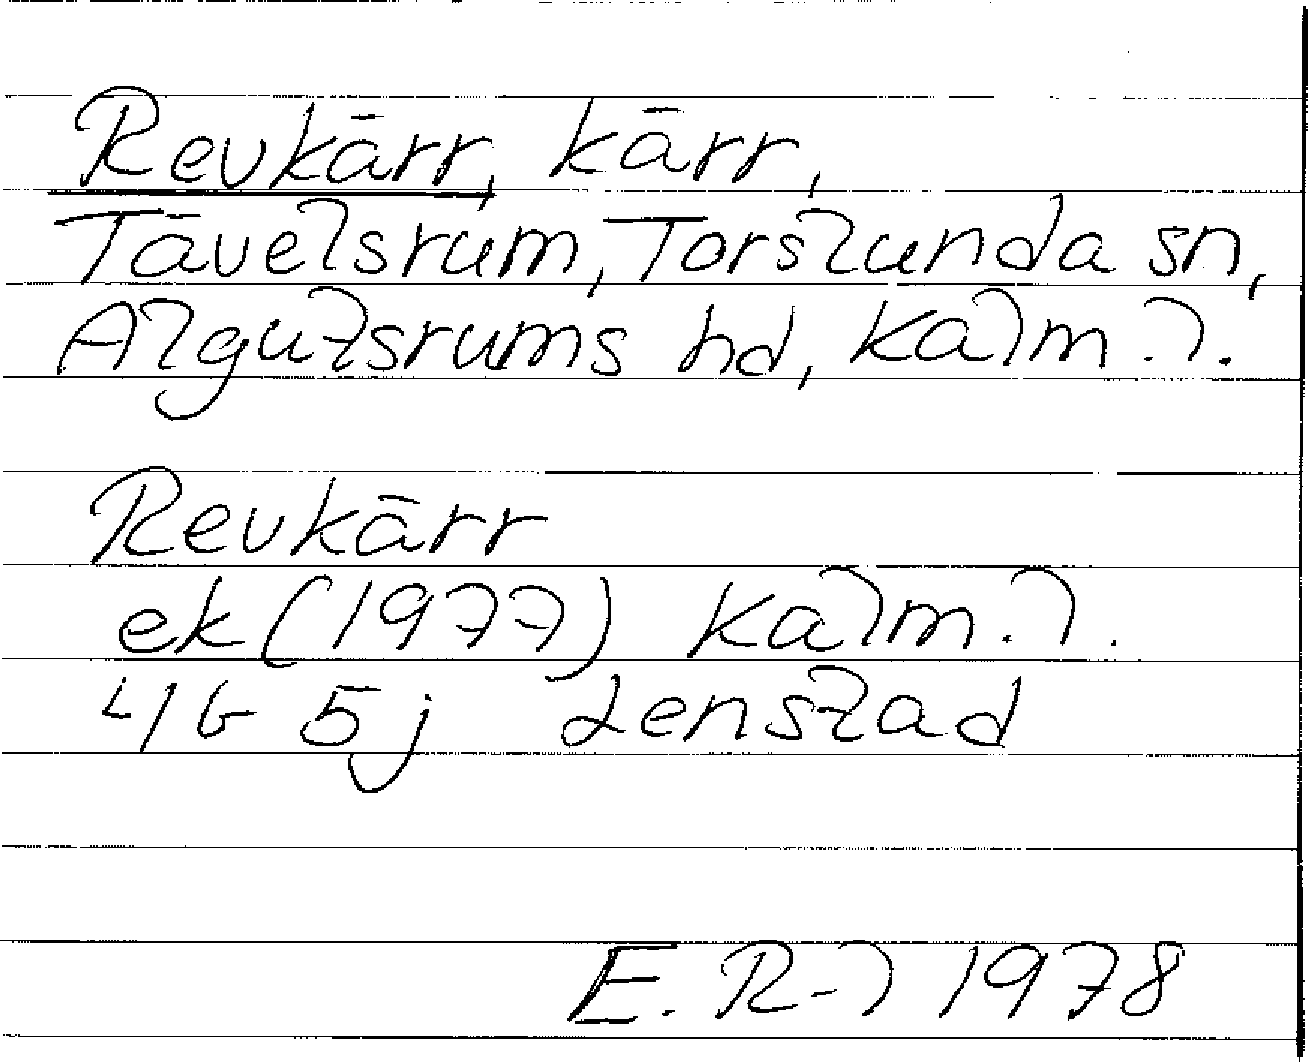 Revkärr, kärr,
Tävelsrum, Torslunda sn,
Algutsrums hd, Kalm. l.
Revkärr
ek (1977) Kalm. l.
4 G 5 j Lenstad
E. R-l 1978